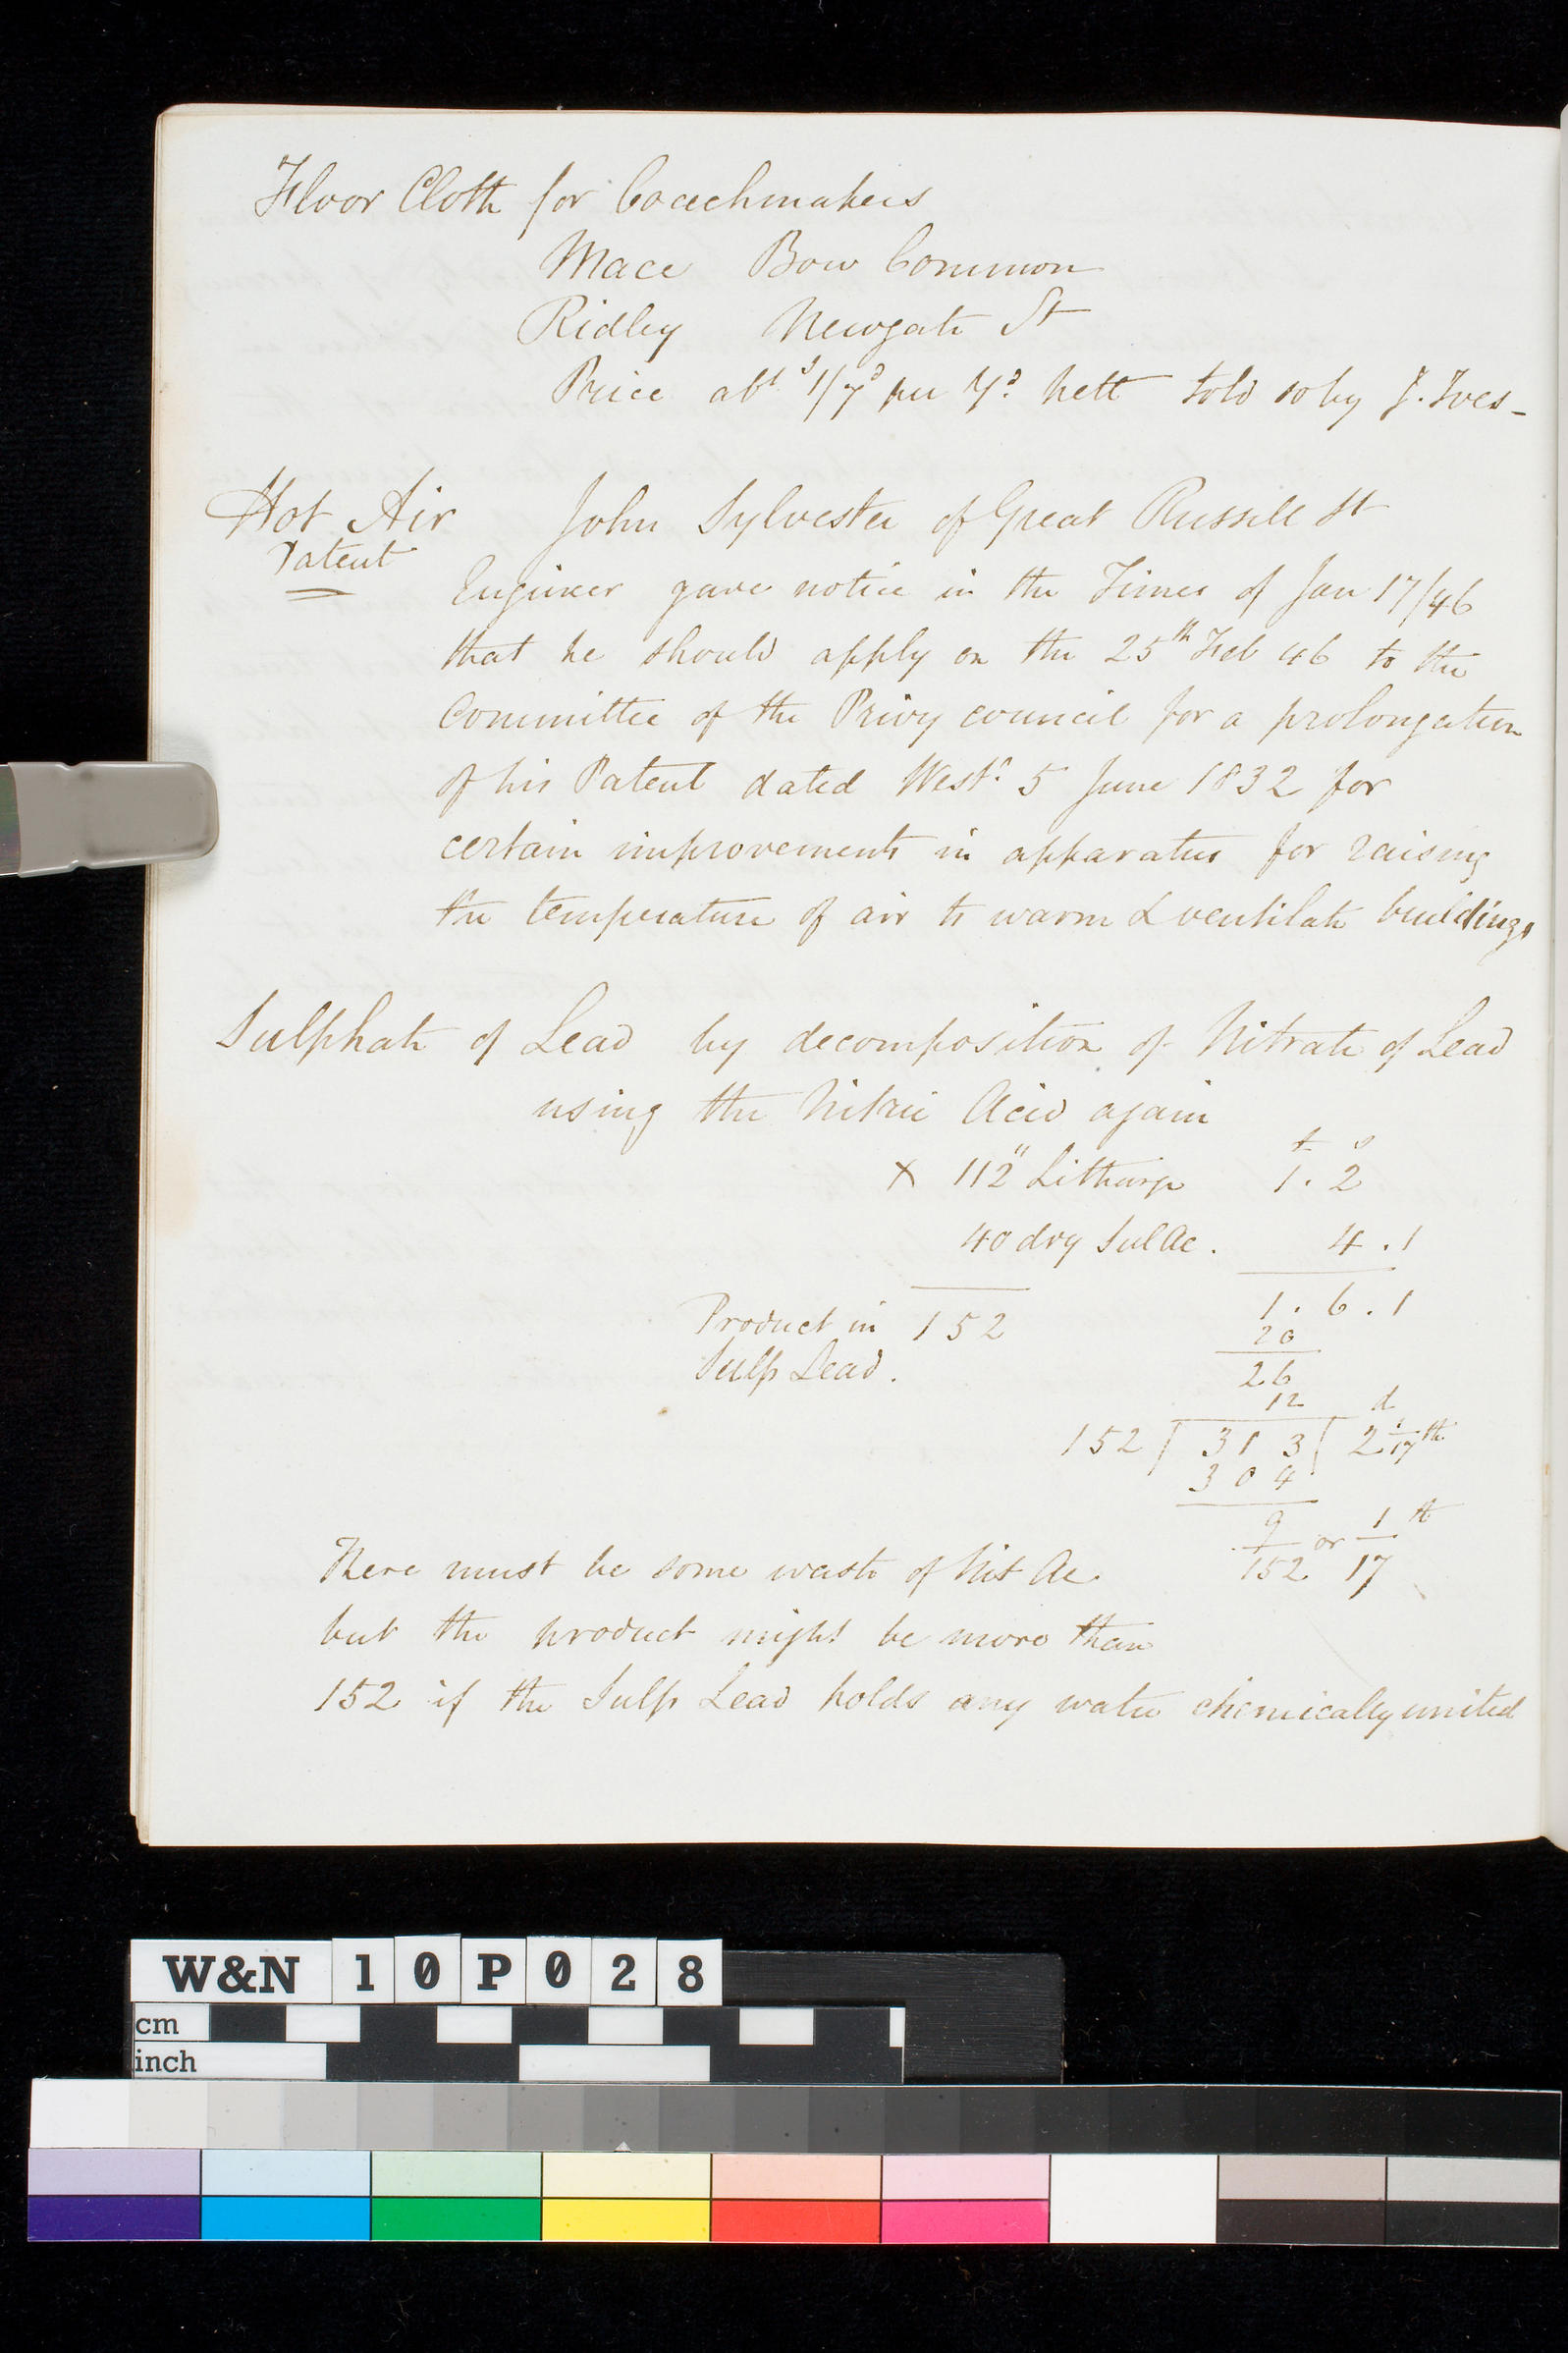 Floor Cloth for Coachmakers
Mace Bow Common
Ridley Newgate St
Price abt s1/7d per Yd nett told so by J. Ives -
Hot Air John Sylvester of Great Russell St
Patent
Engineer gave notice in the Times of Jan 17/46
that he should apply on the 25th Feb 46 to the
Committee of the Privy council for a prolongation
of his Patent dated Westr 5 June 1832 for
certain improvements in apparatus for raising
the temperature of air to warm & ventilate buildings
Sulphate of Lead by decomposition of Nitrate of Lead
using the Nitric Acid again
£ s
X 112" Litharge 1. 2
40 dry Sul Ac. 4.1
Product in 152 1.6.1
Sulp Lead. 20
26
12 d
152 313 2 1/17th
304
9/152 or 1/17 th
There must be some waste of Nit Ac
but the product might be more than
152 if the Sulp Lead holds any water chemically united
W&N 10P028
cm
inch